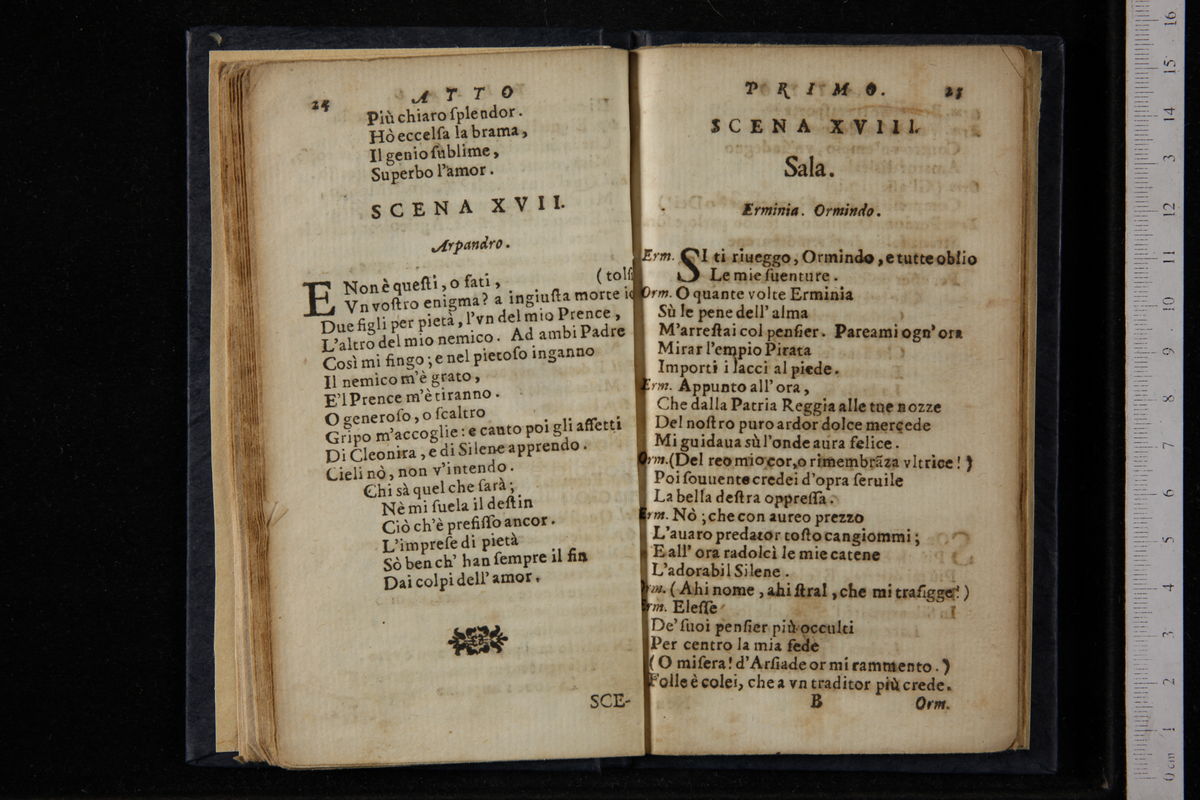 24
ATTO
Più chiaro ſplendor.
Hò eccelſa la brama,
Il genio ſublime,
Superbo l'amor.
SCENA XVII.
Arpandro.
E Non è queſti, o fati, (tolſi
Vn voſtro enigma? a ingiuſta morte io
Due figli per pietà, l'vn del mio Prence,
L'altro del mio nemico. Ad ambi Padre
Così mi fingo; e nel pietoſo inganno
Il nemico m'è grato,
E'l Prence m'è tiranno.
O generoſo, o ſcaltro
Gripo m'accoglie: e cauto poi gli affetti
Di Cleonira, e di Silene apprendo.
Cieli nò, non v'intendo.
Chi sà quel che ſarà;
Nè mi ſuela il deſtin
Ciò ch'è prefiſſo ancor.
L'impreſe di pietà
Sò ben ch' han ſempre il fin
Dai colpi dell' amor.
SCE-
PRIMO.
25
SCENA XVIII.
Sala.
Erminia. Ormindo.
Erm. SI ti riueggo, Ormindo, e tutte oblio
Le mie ſuenture.
Orm. O quante volte Erminia
Sù le pene dell' alma
M'arreſtai col penſier. Pareami ogn' ora
Mirar l'empio Pirata
Importi i lacci al piede.
Erm. Appunto all' ora,
Che dalla Patria Reggia alle tue nozze
Del noſtro puro ardor dolce mercede
Mi guidaua sù l'onde aura felice.
Orm. (Del reo mio cor, o rimembrãza vltrice!)
Poi ſouuente credei d'opra ſeruile
La bella deſtra oppreſſa.
Erm. Nò; che con aureo prezzo
L'auaro predator toſto cangiommi;
E all' ora radolcì le mie catene
L'adorabil Silene.
Orm. (Ahi nome, ahi ſtral, che mi trafigge!)
Erm. Eleſſe
De' ſuoi penſier più occulti
Per centro la mia fede
(O miſera! d'Arſiade or mi rammento.)
Folle è colei, che a vn traditor più crede.
B
Orm.